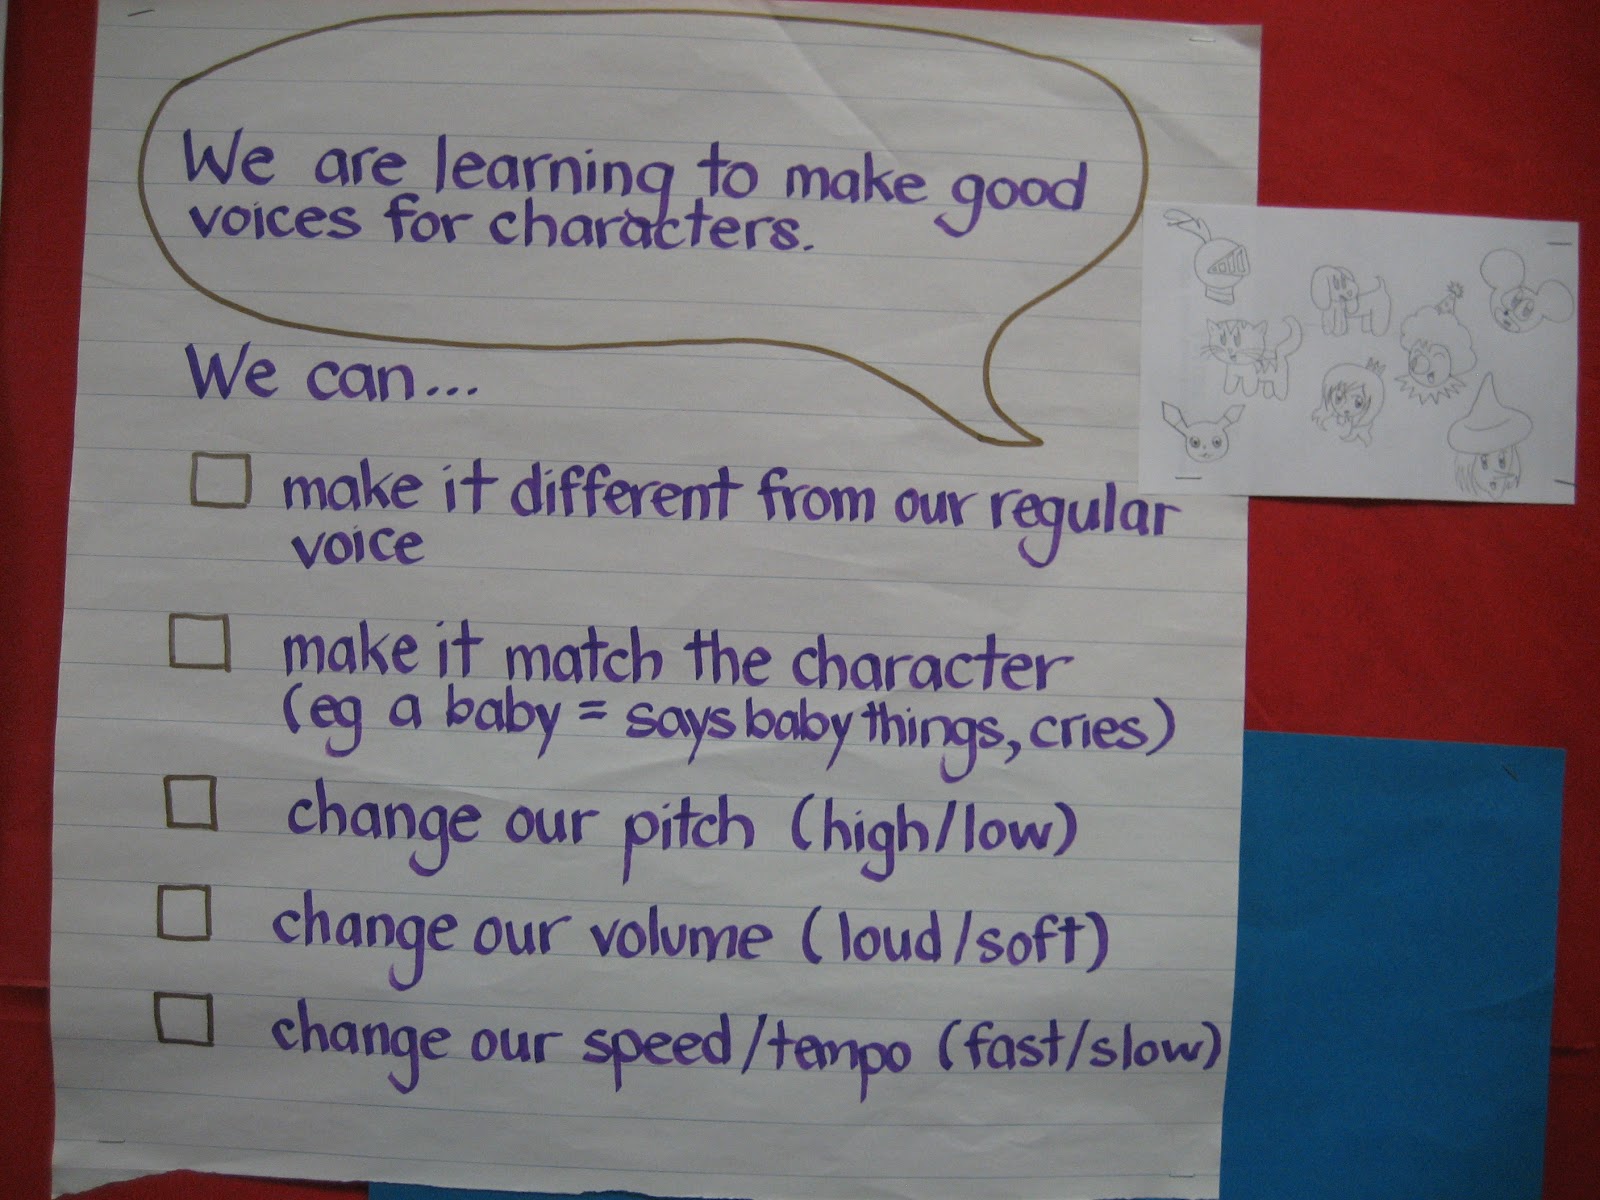 We are learning to make good
voices for characters.
We can...
make it different from our regular
voice
make it match the character
(eg a baby = says baby things, cries)
change our pitch (high/low)
change our volume (loud/soft)
change our speed/tempo (fast/slow)